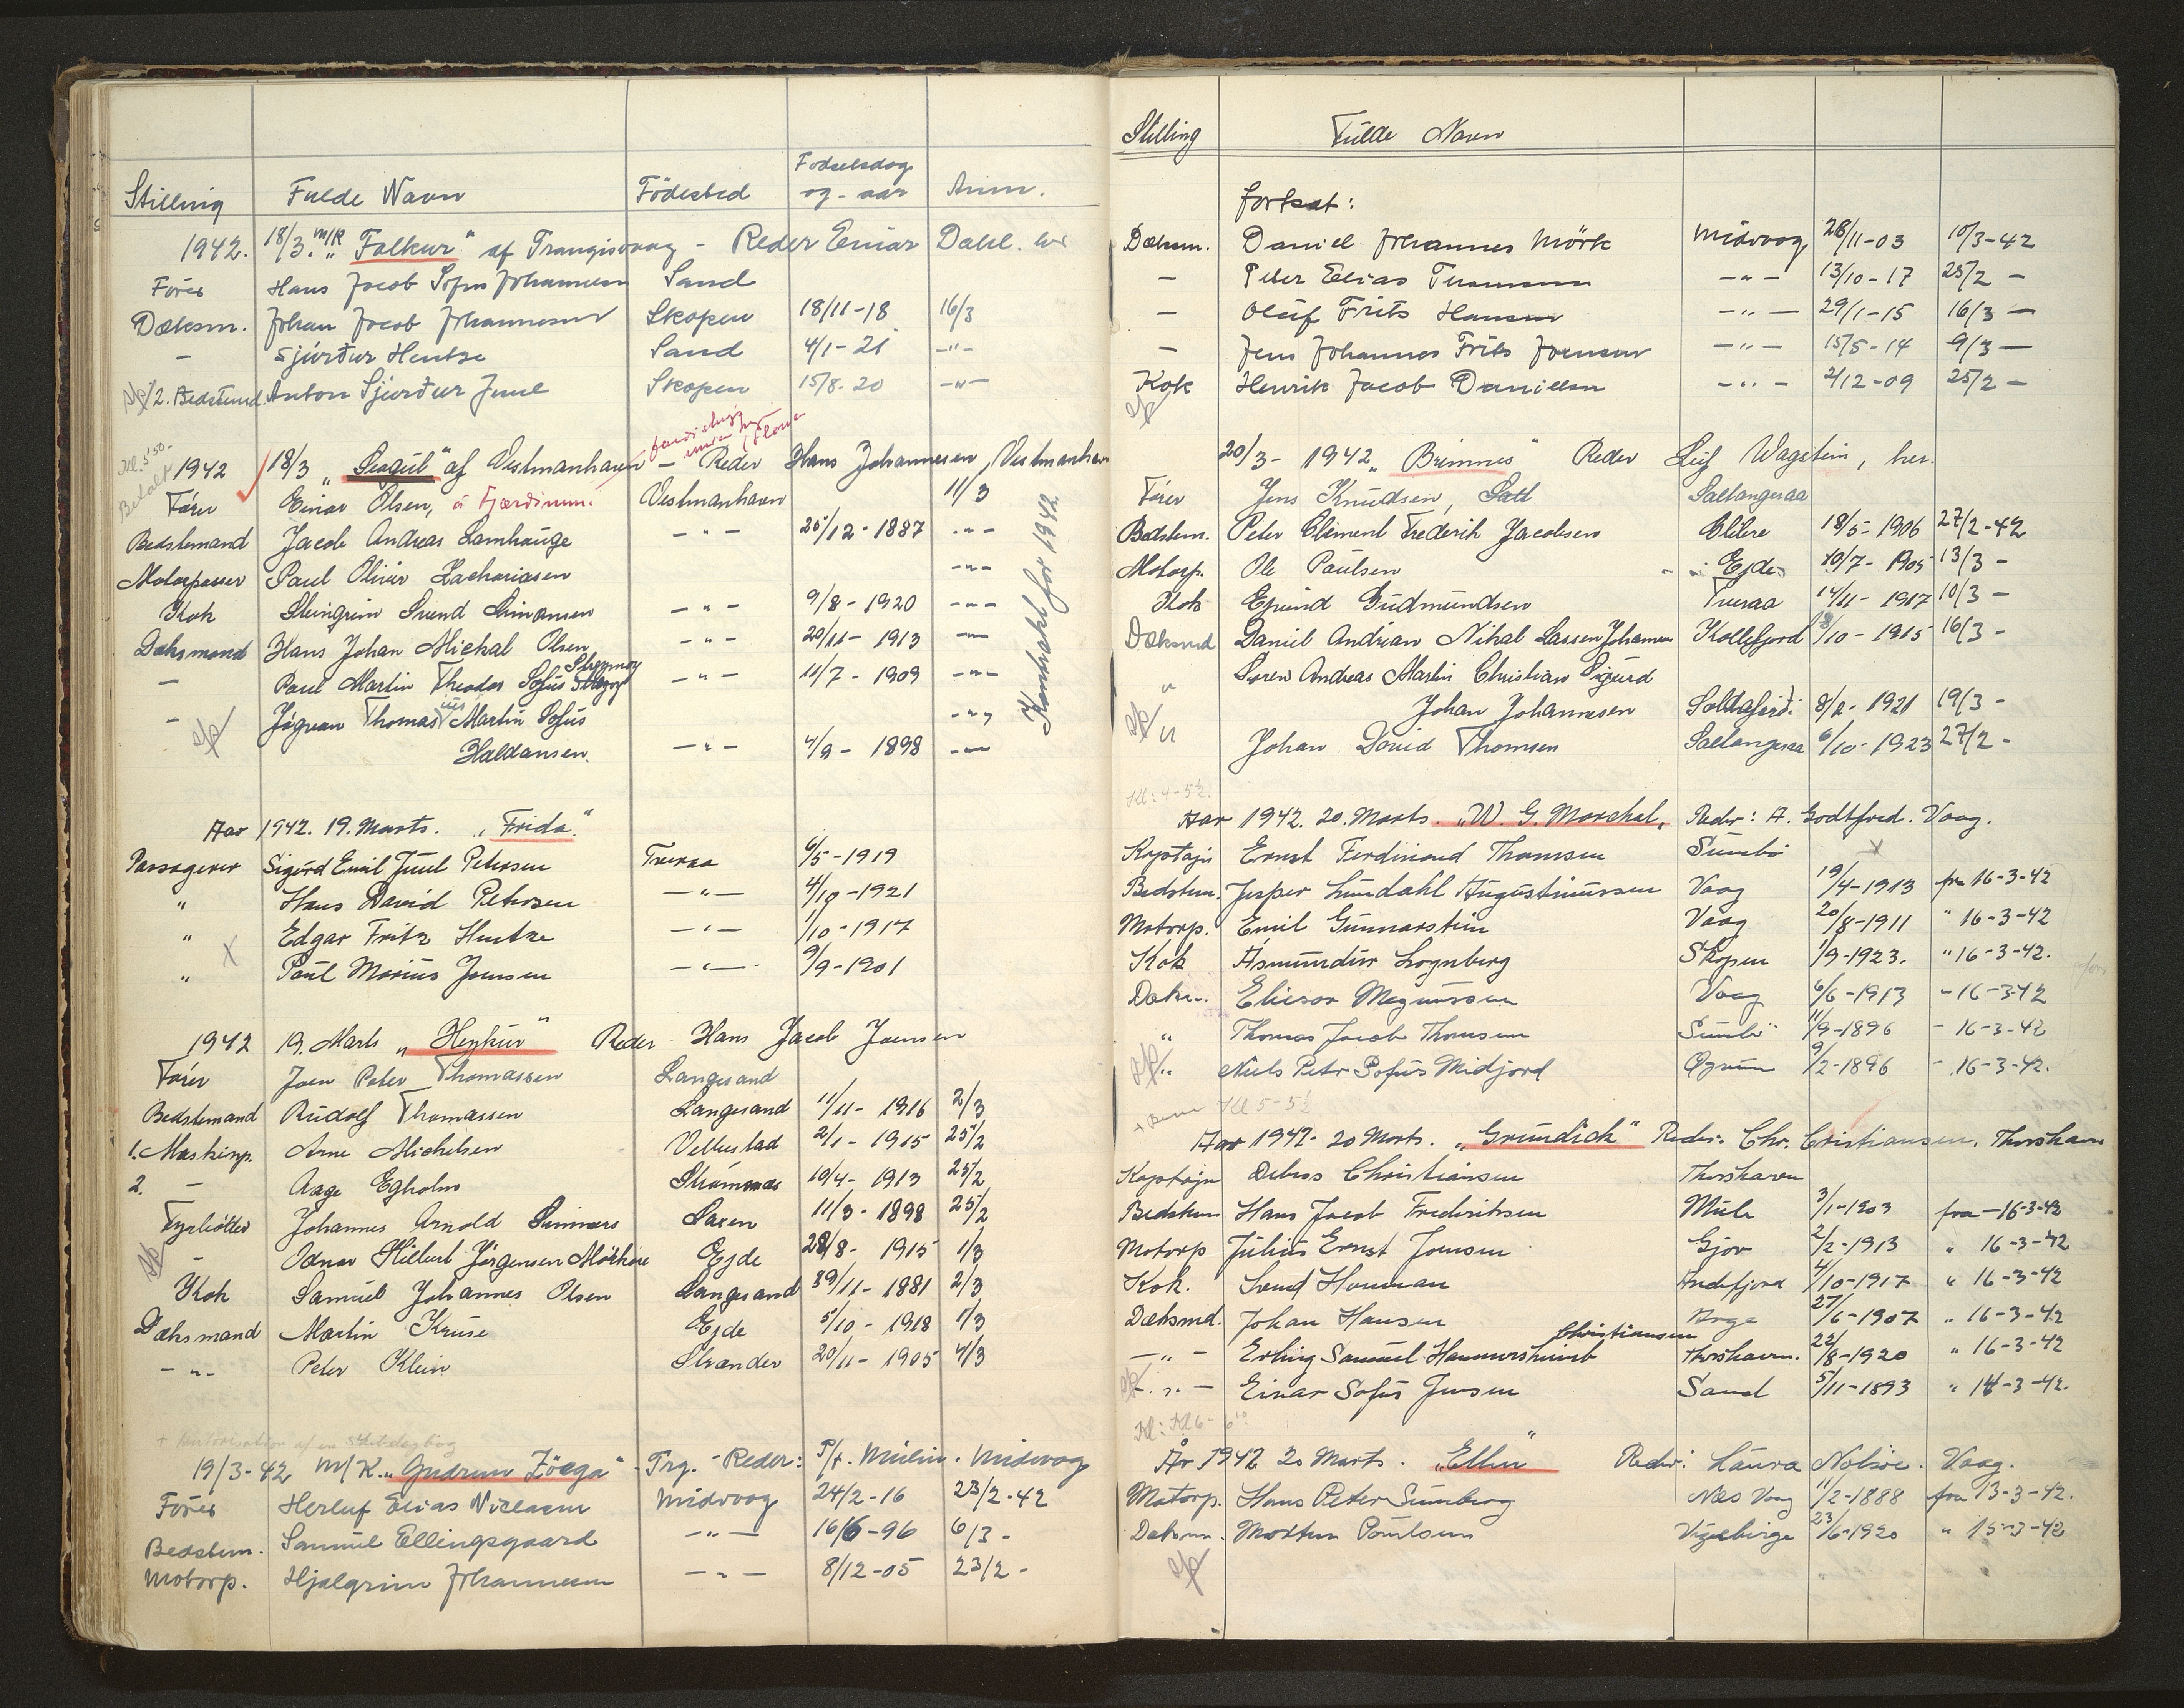 Stilling Fulde Navn Födested Fodselsdag og - aar Anm.
1942. 18/3. M/K „Falkur“ af Trangisvaag - Reder Einar Dahl. her
Förer Hans Jacob Sofus Johannesen Sand
Dæksm. Johan Jacob Johannesen Skopen 18/11-18 16/3
— Sjúrður Hentze Sand 4/1-21 —"—
2. Bedstemd. Anton Sjúrður Juul Skopen 15/8-20 —"—
Kl. 5³⁰- Betalt
1942 18/3 „Seagul“ af Vestmanhavn — Reder Hans Johannesen, Vestmanhavn
Fører Einar Olsen, á Fjørdinum. Vestmanhavn 11/3
Bedstemand Jacob Andreas Lamhauge —"— 25/12-1887 —"—
Motorpasser Paul Oliver Zachariasen —"—
Kok Steingrim Svend Simonsen —"— 9/8-1920 —"—
Dæksmand Hans Johan Michal Olsen —"— 20/11-1913 —"—
— Paul Martin Theodor Sofus Streymoy —"— 11/7-1909 —"—
- Jógvan Thomasius Martin Sofus —"—
Haldansen. —"— 4/9-1898 —"—
Kontrakt for 1942
Aar 1942. 19. Marts. „Frida.“
Passagerer Sigurd Emil Juul Petersen Tveraa 6/5-1919
" Hans David Petersen —"— 4/10-1921
" Edgar Fritz Hentze —"— 1/10-1917
" Paul Marius Joensen —"— 9/9-1901
1942 19. Marts „Heykur“ Reder Hans Jacob Joensen
Fører Joen Peter Thomassen Langesand
Bedstemand Rudolf Thomassen Langesand 11/11-1916 2/3
1. Maskinp. Arne Michelsen Velbestad 2/1-1915 25/2
2. — Aage Egholm Strømnæs 10/4-1913 25/2
Fyrbøder Johannes Arnold Simmers Saxen 11/3-1898 25/2
— Hilbert Jørgensen Mørkøre Ejde 28/8-1915 1/3
Kok Samuel Johannes Olsen Langesand 30/11-1881 2/3
Dæksmand Martin Kruse Ejde 5/10-1918 1/3
—"— Peter Klein Strænder 20/11-1905 4/3
+ Autorisation af en Skibsdagbog
19/3-42 M/K. „Gudrun Zöega“ - Trg. - Reder: P/f. Mulin. Midvaag
Förer Herluf Elias Niclasen Midvaag 24/2-16 23/2-42
Bedstem. Samuel Ellingsgaard —"— 16/6-96 6/3 -
Motorp. Hjalgrim Johannesen —"— 8/12-05 23/2 -
Stilling Fulde Navn
fortsat:
Dæksm. Daniel Johannes Mörk Midvaag 28/11-03 10/3-42
— Peter Elias Thomsen —"— 13/10-17 25/2 —
— Oluf Frits Hansen —"— 29/1-15 16/3 —
— Jens Johannes Frits Joensen —"— 15/5-14 9/3 —
Kok Henrik Jacob Danielsen —"— 2/12-09 25/2 —
20/3- 1942 „Brimnes“ Reder Leif Wagstein, her.
Fører Jens Knudsen, Saltangeraa
Bedstem. Peter Climent Frederik Jacobsen Elduvik 18/5-1906 27/2-42
Motorp. Ole Paulsen Ejde 10/7-1905 13/3 -
Kok Ejvind Gudmundsen Tveraa 14/11-1917 10/3 -
Dæksmd Daniel Andrian Nikal Lassen Johansen Kollefjord 8/10-1915 16/3 -
" Søren Andreas Martin Christian Sigurd
Johan Johannesen Soldafjord 8/2-1921 19/3 -
" Johan David Thomsen Saltangeraa 6/10-1923 27/2 -
Kl: 4-5½.
Aar 1942. 20. Marts. „W. G. Marshal“ Reder: A. Godtfred. Vaag.
Kaptajn Ernst Ferdinand Thomsen Sumbö
Bedstem. Jesper Lundahl Augustinussen Vaag 19/4-1913 fra 16-3-42
Motorp. Emil Gunnarstein Vaag 20/8-1911 " 16-3-42
Kok Ásmundur Lognberg Skopen 1/9-1923. " 16-3-42.
Dæksm. Eliesar Magnussen Vaag 6/6-1913 - 16-3-42
" Thomas Jacob Thomsen Sumbö 11/9-1896 - 16-3-42
" Niels Peter Sofus Midjord Øravig 9/2-1896 - 16-3-42.
Kl 5-5½
Aar 1942- 20 Marts. „Grundick“ Reder. Chr. Cristiansen. Thorshavn
Kaptajn Debes Christiansen Thorshavn
Bedstem Hans Jacob Frederiksen Mule 3/1-1903 fra -16-3-42
Motorp Julius Ernst Joensen Gjov 2/2-1913 " 16-3-42
Kok. Svend Andefjord 4/10-1917 " 16-3-42
Dæksmd. Johan Hansen Arge 27/6-1907 " 16-3-42
—"— Erling Samuel Hammershaimb Christiansen Thorshavn. 22/8-1920 " 16-3-42
—"— Einar Sofus Jensen Sand 5/11-1893 " 14-3-42.
Kl: Kl 6-6¹⁰
År 1942 20 Marts. „Ellen“ Reder: Laura Nolsøe. Vaag.
Motorp. Hans Peter Sumberg Næs Vaag 11/2-1888 fra 13-3-42.
Dæksm. Morten Poulsen Vigebirge 23/6-1920 " 15-3-42